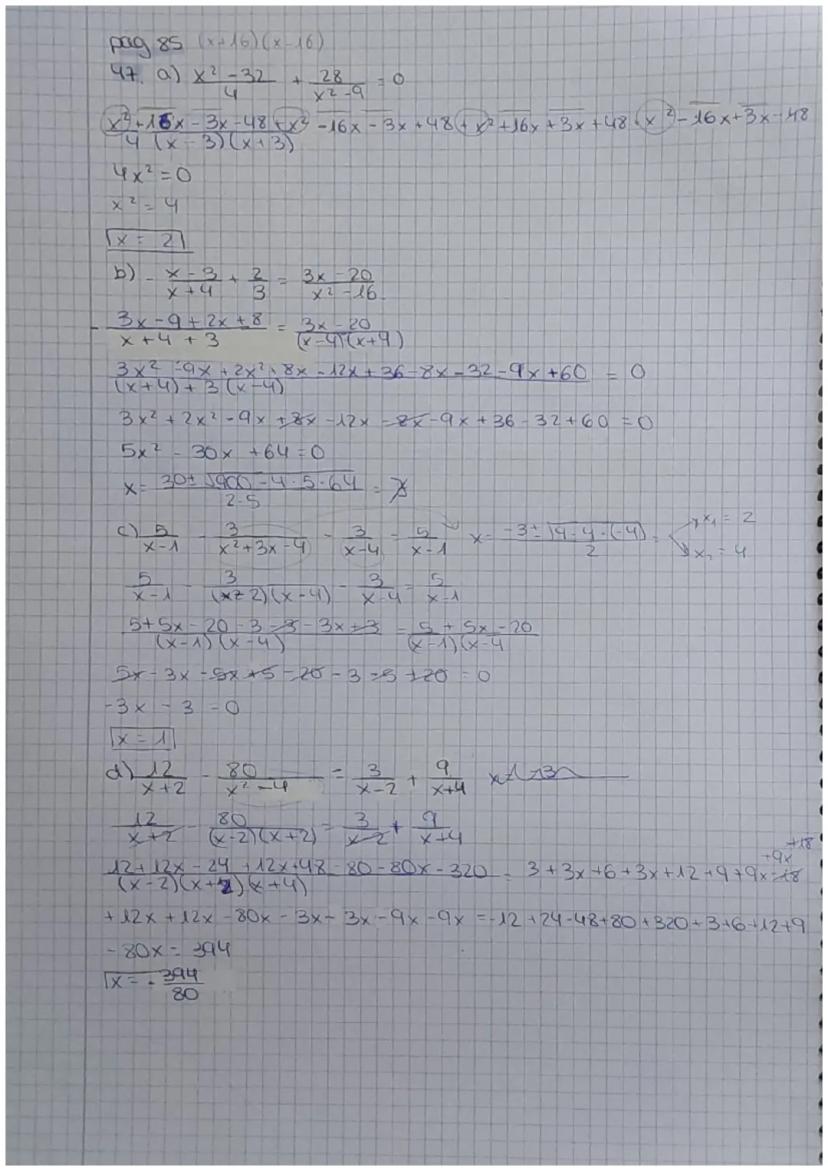 pag 85 (x+16)(x-16)
47. a) x² - 32 / 4 + 28 / x² - 9 = 0
x² + 16x - 3x - 48 + x² - 16x - 3x + 48 + x² + 16x + 3x + 48 + x² - 16x + 3x - 48
4 (x - 3)(x + 3)
4x² = 0
x² = 4
x = 2
b) - x - 3 / x + 4 + 2 / 3 = 3x - 20 / x² - 16
- 3x - 9 + 2x + 8 / x + 4 + 3 = 3x - 20 / (x - 4)(x + 4)
3x² - 9x + 2x² + 8x - 12x + 36 - 8x - 32 - 9x + 60 / (x+4) + 3 (x - 4) = 0
3x² + 2x² - 9x + 8x - 12x - 8x - 9x + 36 - 32 + 60 = 0
5x² - 30x + 64 = 0
x = 30 ± √900 - 4 · 5 · 64 / 2·5 =
c) 5 / x - 1 - 3 / x² + 3x - 4 - 3 / x - 4 = 5 / x - 1 x = -3 ± √9 - 4 · (-4) / 2 = x₁ = 2 x₂ = 4
5 / x - 1 - 3 / (x + 2)(x - 4) - 3 / x - 4 = 5 / x - 1
5 + 5x - 20 - 3 - 3 - 3x + 3 / (x - 1)(x - 4) = 5 + 5x - 20 / (x - 1)(x - 4
5x - 3x - 5x + 5 - 20 - 3 - 5 + 20 = 0
-3x - 3 = 0
x = 1
d) 12 / x + 2 - 80 / x² - 4 = 3 / x - 2 + 9 / x + 4
12 / x + 2 - 80 / (x - 2)(x + 2) = 3 / x - 2 + 9 / x + 4
+18
+9x
12 + 12x - 24 + 12x + 48 - 80 - 80x - 320 / (x - 2)(x + 2)(x + 4) = 3 + 3x + 6 + 3x + 12 + 9 + 9x - 18
+ 12x + 12x - 80x - 3x - 3x - 9x - 9x = -12 + 24 - 48 + 80 + 320 + 3 + 6 + 12 + 9
- 80x = 394
x = - 394 / 80